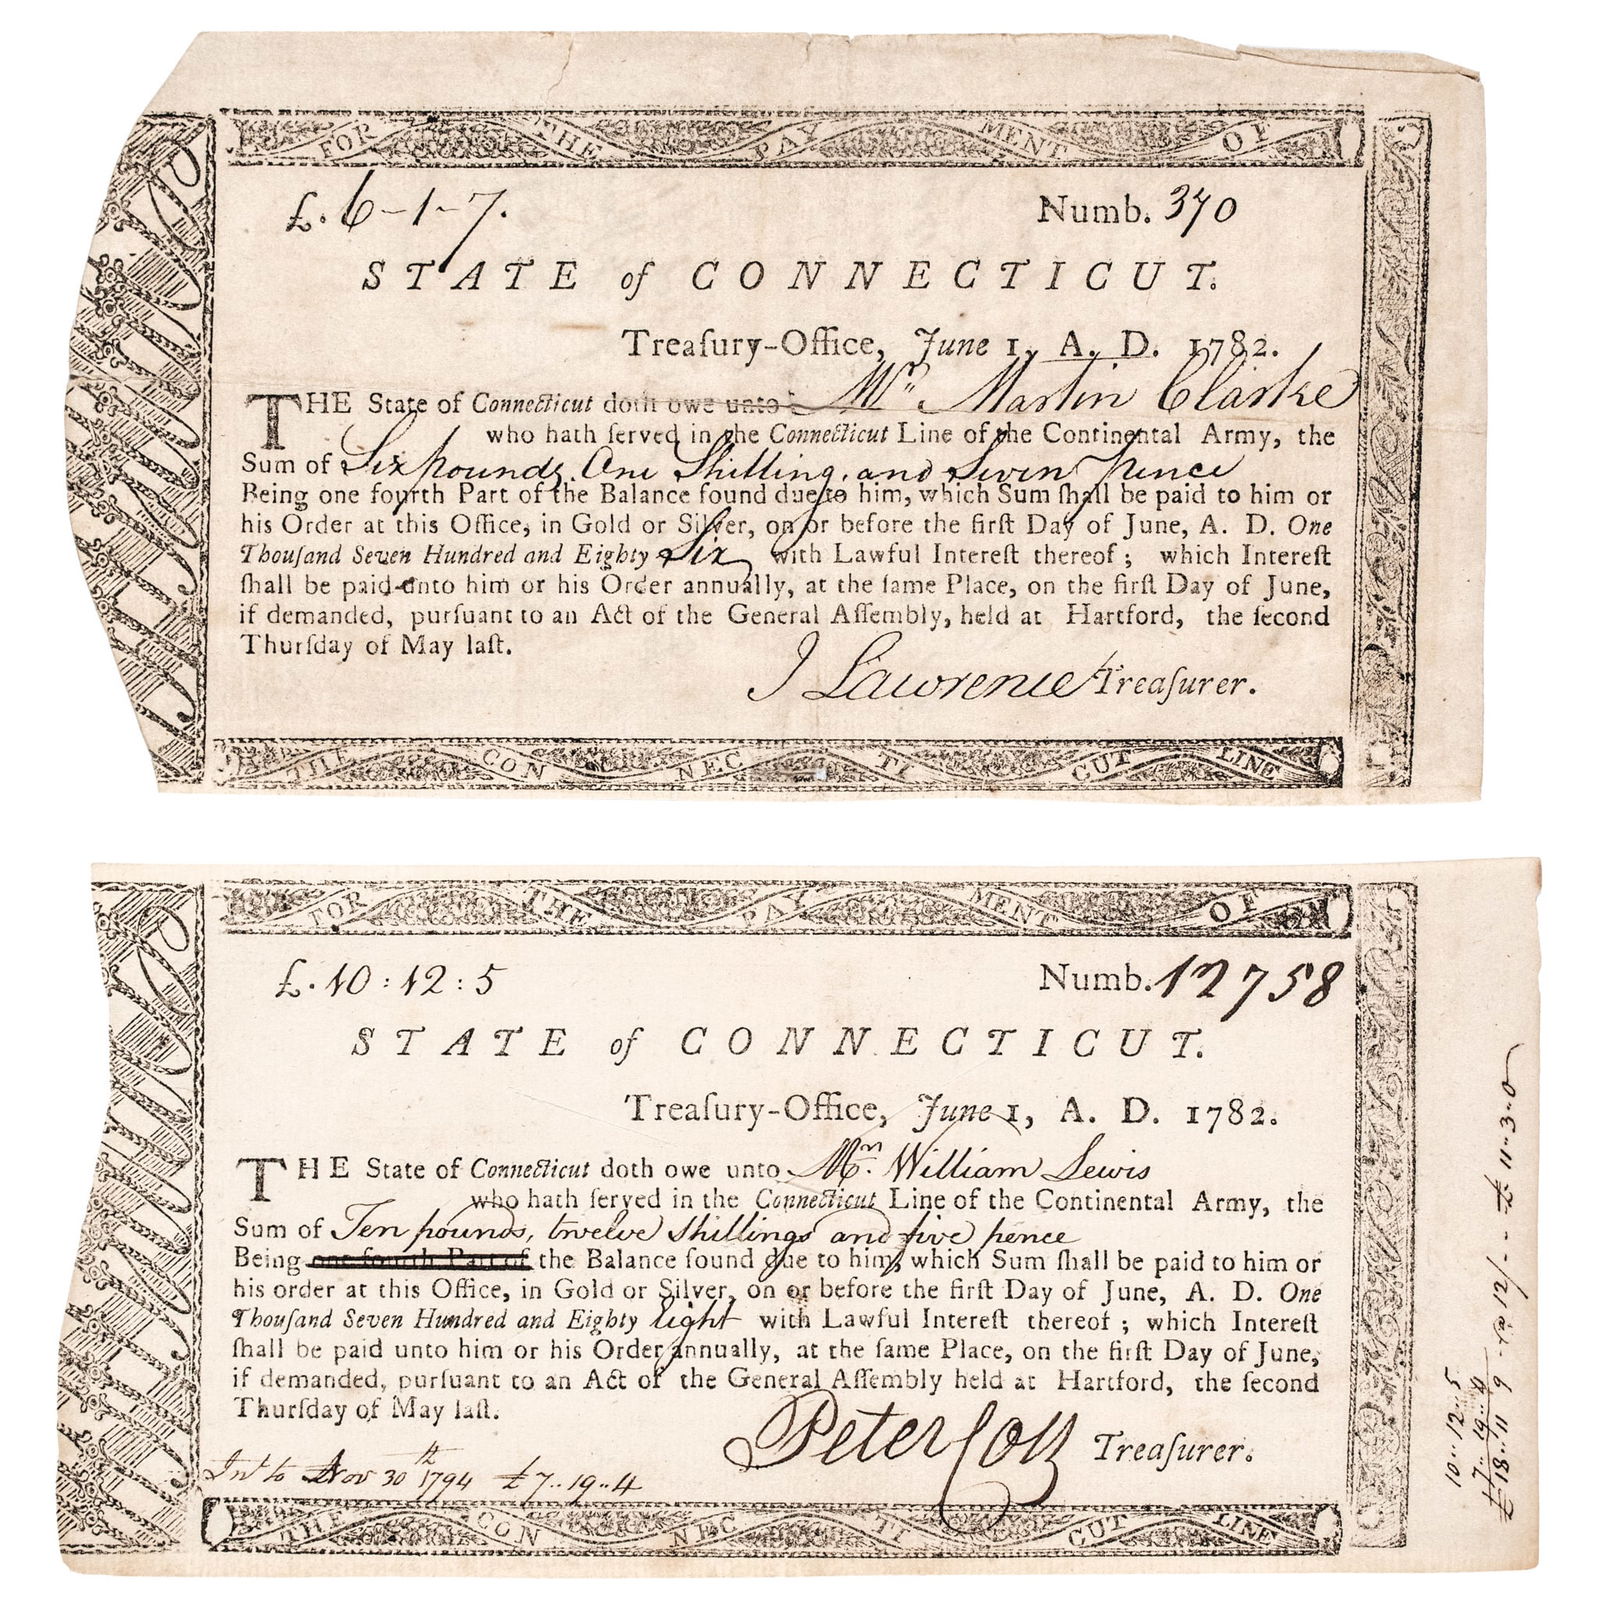 FOR THE PAYMENT OF
£. 6-1-7.
Numb. 370
STATE of CONNECTICUT.
Treaſury-Office, June 1, A. D. 1782.
THE State of Connecticut doth owe unto Mr. Martin Clarke
who hath ſerved in the Connecticut Line of the Continental Army, the
Sum of Six pounds, One Shilling, and Seven pence
Being one fourth Part of the Balance found due to him, which Sum ſhall be paid to him or
his Order at this Office, in Gold or Silver, on or before the firſt Day of June, A. D. One
Thouſand Seven Hundred and Eighty Six with Lawful Intereſt thereof; which Intereſt
ſhall be paid unto him or his Order annually, at the ſame Place, on the firſt Day of June,
if demanded, purſuant to an Act of the General Aſſembly, held at Hartford, the ſecond
Thurſday of May laſt.
J Lawrence Treaſurer.
THE CONNECTICUT LINE
FOR THE PAYMENT OF
£. 10:12:5
Numb. 12758
STATE of CONNECTICUT.
Treaſury-Office, June 1, A. D. 1782.
THE State of Connecticut doth owe unto Mr. William Lewis
who hath ſerved in the Connecticut Line of the Continental Army, the
Sum of Ten pounds, twelve shillings and five pence
Being one fourth Part of the Balance found due to him, which Sum ſhall be paid to him or
his order at this Office, in Gold or Silver, on or before the firſt Day of June, A. D. One
Thouſand Seven Hundred and Eighty Eight with Lawful Intereſt thereof; which Intereſt
ſhall be paid unto him or his Order annually, at the ſame Place, on the firſt Day of June,
if demanded, purſuant to an Act of the General Aſſembly held at Hartford, the ſecond
Thurſday of May laſt.
Peter Colt Treaſurer.
Int to Nov 30th 1794 £7..19..4
THE CONNECTICUT LINE
10..12..5
7..19..4
£18..11..9 @ 12/ -- £11..3..0